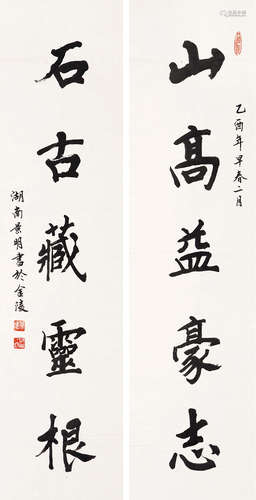 山高益豪志
乙酉年早春二月
石古藏靈根
湖南景明書於金陵